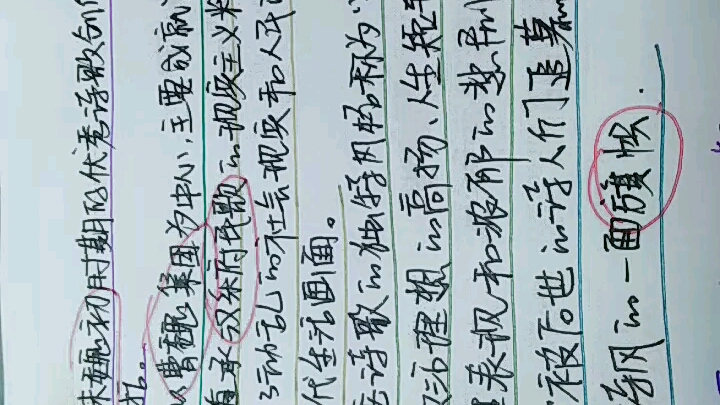 末魏初时期的优秀诗歌创
以曹魏集团为中心,主要成就
承汉乐府民歌的现实主义
了动乱的社会现实和人民
代生活画面。
诗歌的独特风格称为
政治理想的高扬、人生短
和浓郁的悲剧
被后世的诗人们追慕
风的一面旗帜.